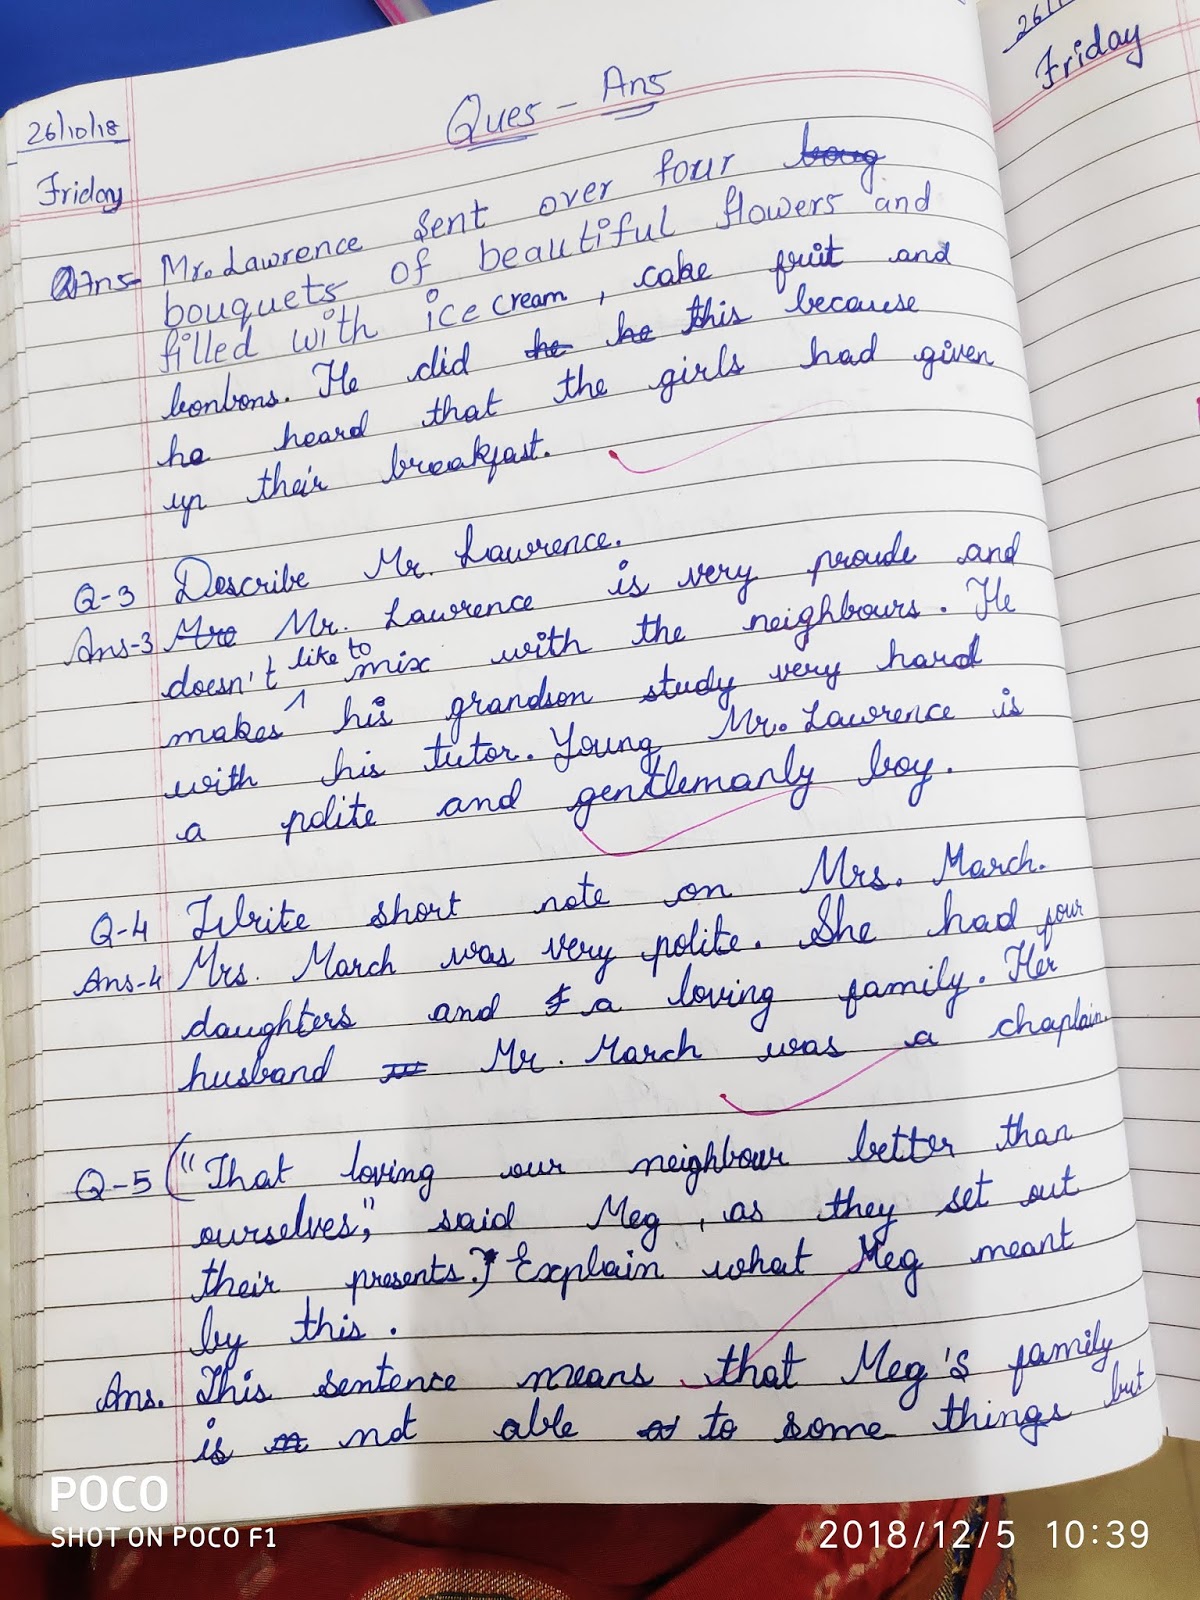 26/10/18
Ques - Ans
Friday
Ans- Mr. Lawrence sent over four
bouquets of beautiful flowers and
filled with ice cream, cake fruit and
bonbons. He did this because
he heard that the girls had given
up their breakfast.
Q-3 Describe Mr. Lawrence.
Ans-3 Mr. Lawrence is very proude and
doesn't like to mix with the neighbours. He
makes his grandson study very hard
with his tutor. Young Mr. Lawrence is
a polite and gentlemanly boy.
Q-4 Write short note on Mrs. March.
Ans-4 Mrs. March was very polite. She had four
daughters and a loving family. Her
husband Mr. March was a chaplain.
Q-5 ("That loving our neighbour better than
ourselves," said Meg, as they set out
their presents.) Explain what Meg meant
by this.
Ans. This sentence means that Meg's family
is not able to some things but
Friday
POCO
SHOT ON POCO F1
2018/12/5 10:39